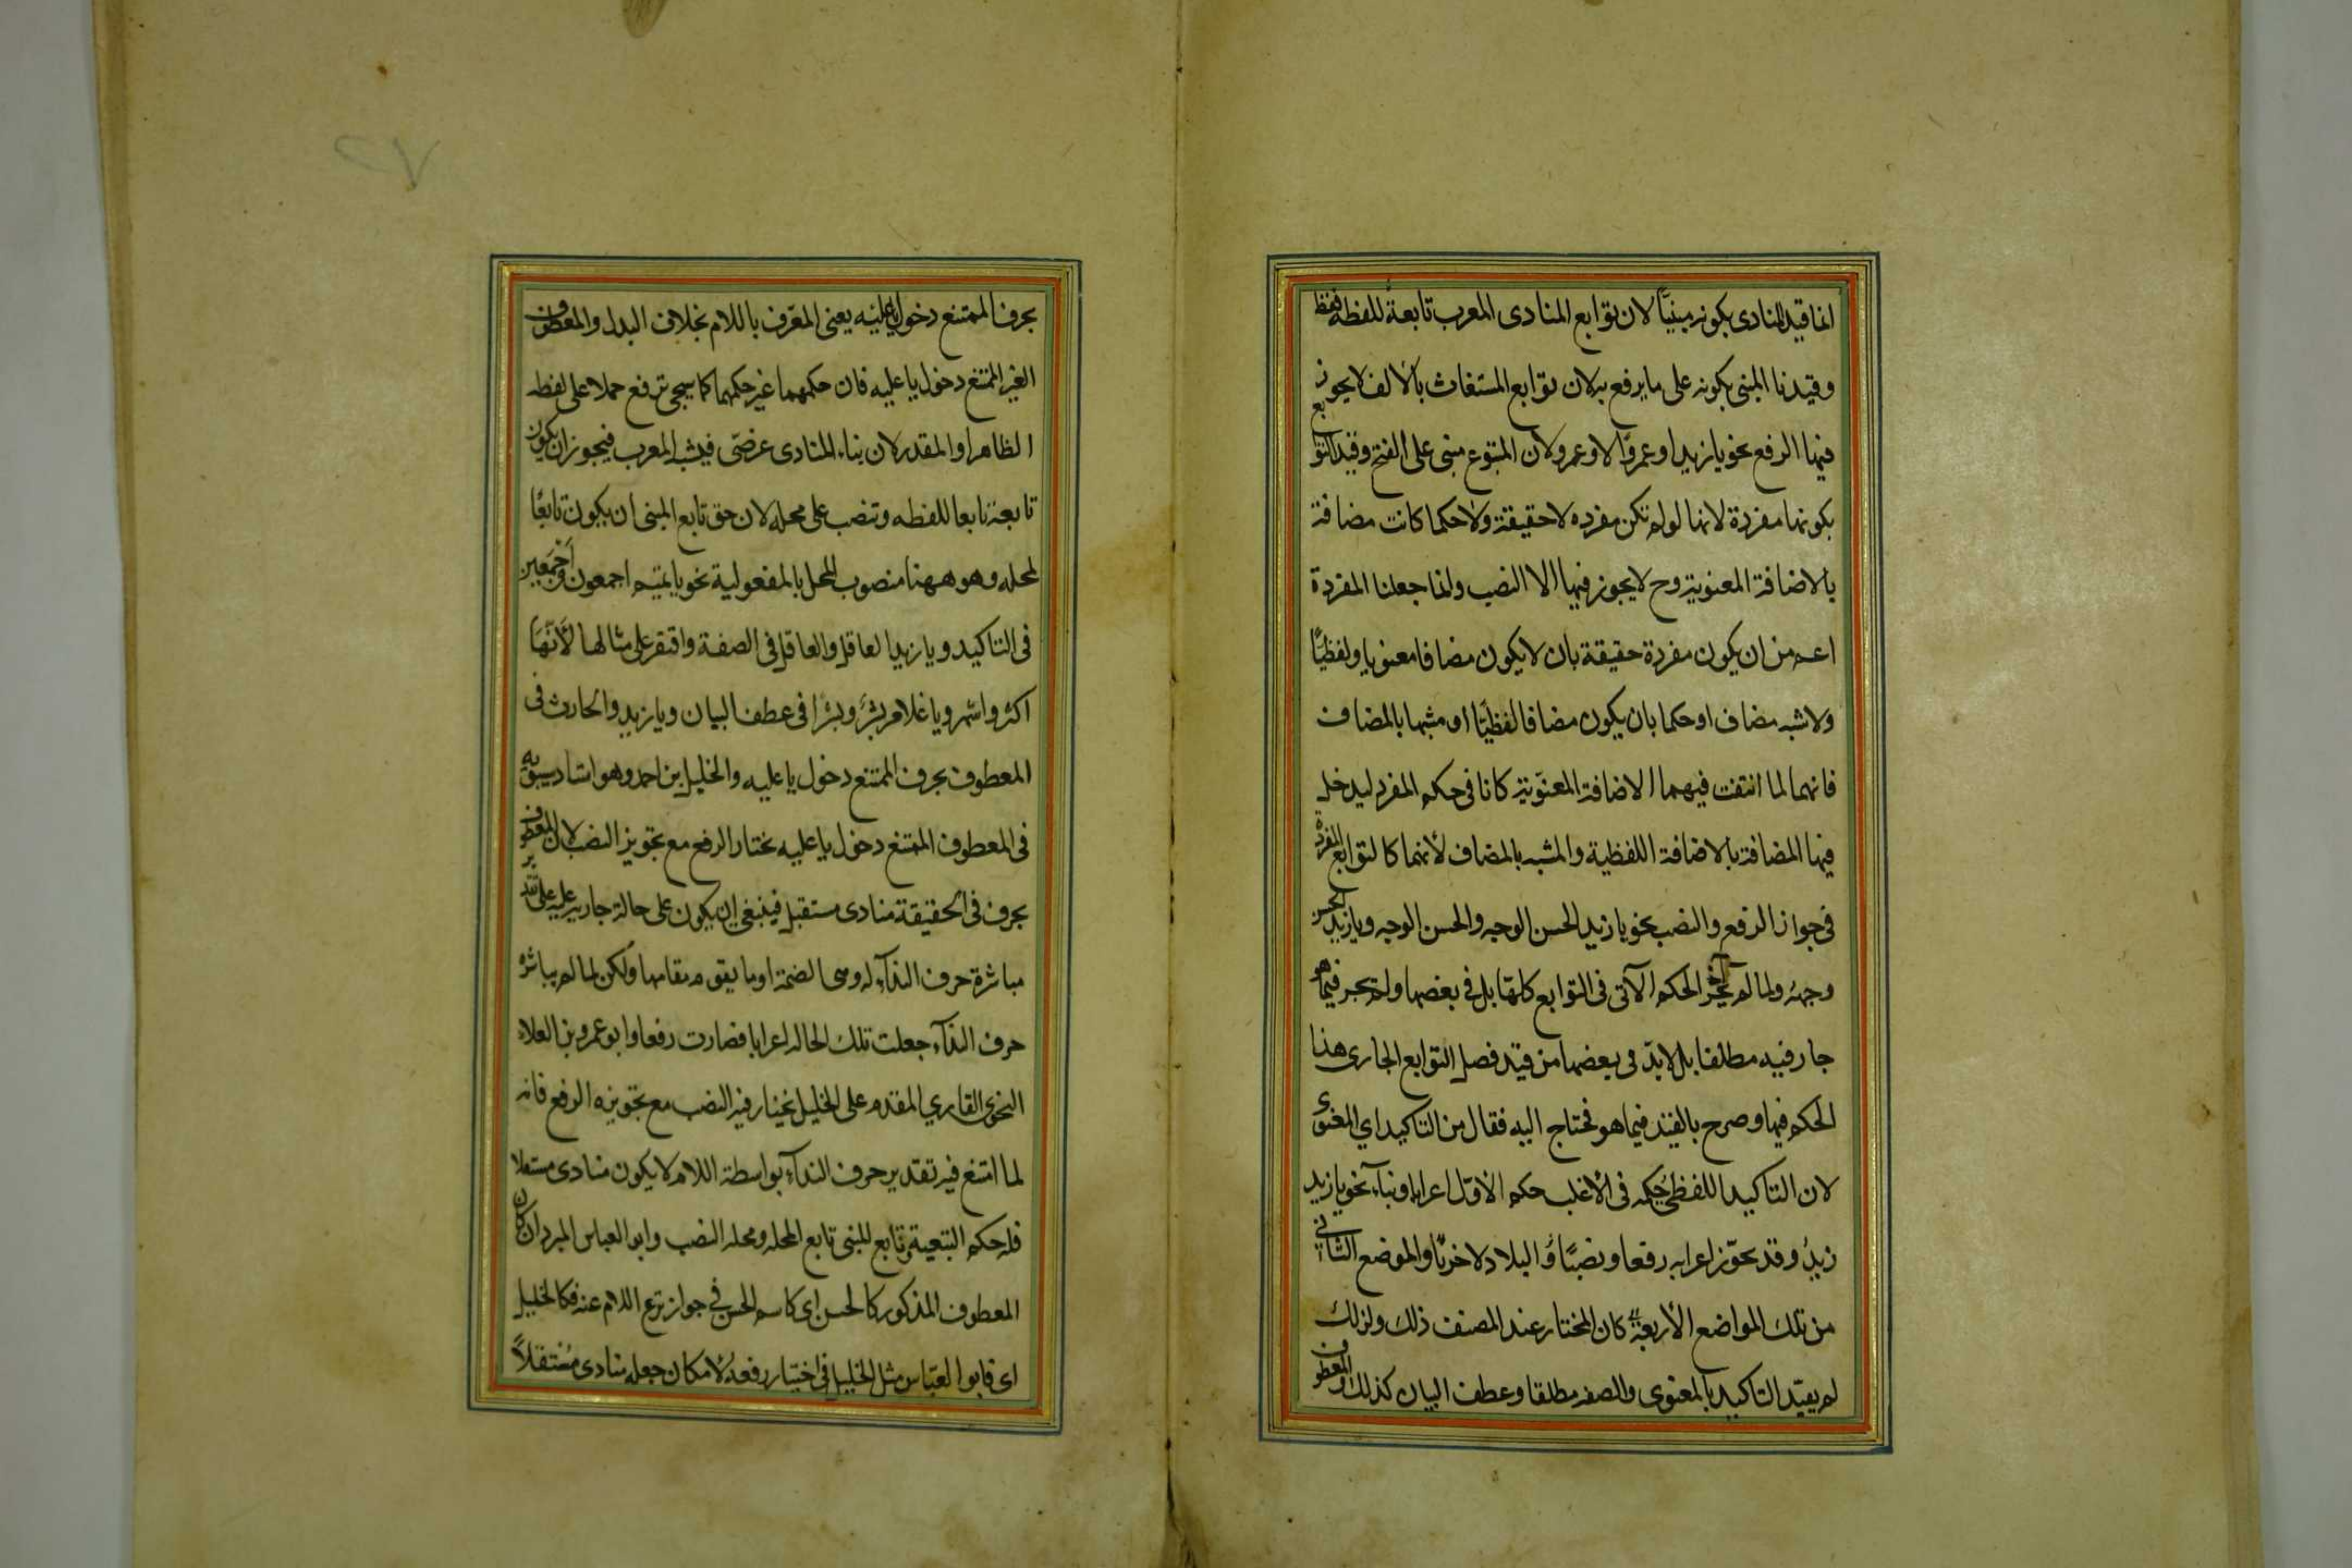 انما قيد المنادى بكونه مبنيًّا لان توابع المنادى المعرب تابعة للفظه فقط
وقيدنا المبنى بكونه على ما يرفع به لان توابع المستغاث بالالف لا يجوز
فيها الرفع نحو يا زيدا وعمرًوا لا وعمرو لان المتبوع مبنى على الفتح وقيد التوابع
بكونها مفردة لانها لو لم تكن مفرده لا حقيقة ولا حكما كانت مضافة
بالاضافة المعنوية وح لا يجوز فيها الا النصب وانما جعلنا المفردة
اعم من ان يكون مفردة حقيقة بان لا يكون مضافا معنويا ولفظيًّا
ولا شبه مضاف او حكما بان يكون مضافا لفظيًّا او مشبها بالمضاف
فانهما لما انتفت فيهما الاضافة المعنوية كانا فى حكم المفرد ليدخل
فيها المضافة بالاضافة اللفظية والمشبه بالمضاف لأنهما كالتوابع المفردة
فى جواز الرفع والنصب نحو يا زيد الحسن الوجه والحسن الوجه ويا زيد الحسن
وجهه ولما لم يجر الحكم الآتى فى التوابع كلها بل فى بعضها ولم يجر فيما هو
جار فيه مطلقا بل لا بدّ فى بعضها من قيد فصل التوابع الجارى هذا
الحكم فيها وصرح بالقيد فيما هو محتاج اليه فقال من التاكيد اي المعنوى
لان التاكيد اللفظى حكمه فى الأغلب حكم الاوّل اعرابا وبناء نحو يا زيد
زيدُ وقد يجوّز اعرابه رفعا ونصبًا
من تلك المواضع الأربعة كان المختار عند المصنف ذلك ولذلك
لم يقيّد التاكيد بالمعنوى والصفه مطلقا وعطف البيان كذلك والمعطوف
بحرف الممتنع دخول يا عليه يعنى المعرّف باللام بخلاف البدل والمعطوف
الغير الممتنع دخول يا عليه فان حكمهما غير حكمهما كما سيجئ ترفع حملا على لفظه
الظاهر او المقدر لان بناء المنادى عرضى فيشبه المعرب فيجوز ان يكون
تابعه تابعا للفظه وتنصب على محله لان حق تابع المبنى ان يكون تابعًا
لمحله وهو ههنا منصوب المحل بالمفعولية نحو يا تيم اجمعون واجمعين
فى التاكيد ويا زيد العاقل والعاقل فى الصفة واقتصر على مثالها لأنّهَا
اكثر واشهر ويا غلام بشر وبشرًا فى عطف البيان ويا زيد والحارث فى
المعطوف بحرف الممتنع دخول يا عليه والخليل بن احمد وهو استاد سيبويه
فى المعطوف الممتنع دخول يا عليه يختار الرفع مع تجويز النصب لان المعطوف
بحرف فى الحقيقة منادى مستقل فينبغى ان يكون على حالة جارية عليه على تقدير
مباشرة حرف النداء له وهى الضمة او ما يقوم مقامها ولكن لما لم يباشره
حرف النداء جعلت تلك الحالة اعرابا فصارت رفعا وابو عمرو بن العلاء
النحوى القاري المقدم على الخليل يختار فيه النصب مع تجويزه الرفع فانه
لما امتنع فيه تقدير حرف النداء بواسطة اللام لا يكون منادى مستقلا
فله حكم التبعية وتابع المبنى تابع لمحله ومحله النصب وابو العباس المبرد ان كان
المعطوف المذكور كالحسن اى كاسم الحسن فى جواز نزع اللام عنه فكالخليل
اى فابو العبّاس مثل الخليل فى اختيار رفعه لامكان جعله منادى مُستقلاً